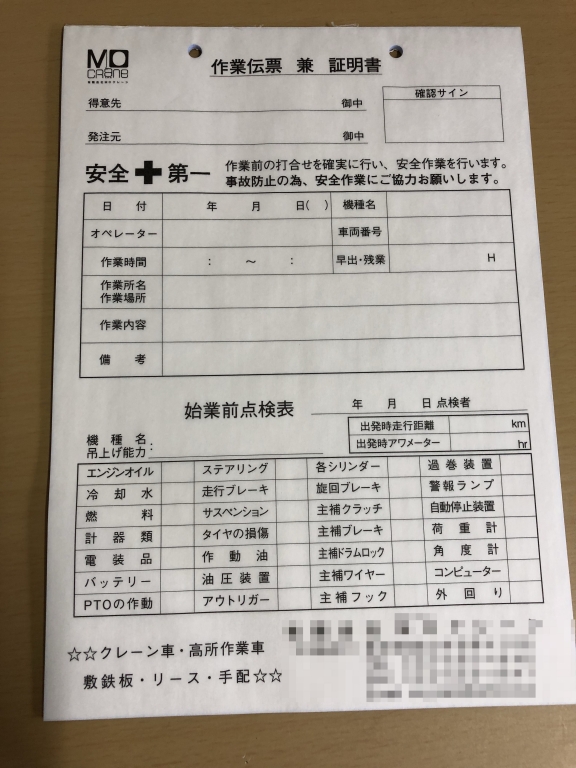 MD
CRane
作業伝票 兼 証明書
確認サイン
得意先 御中
発注元 御中
安全✚第一
作業前の打合せを確実に行い、安全作業を行います。
事故防止の為、安全作業にご協力お願いします。
日 付 年 月 日( ) 機種名
オペレーター 車両番号
作業時間 : ～ : 早出・残業 H
作業所名
作業場所
作業内容
備 考
始業前点検表 年 月 日 点検者
出発時走行距離 km
出発時アワメーター hr
機種名:
吊上げ能力:
エンジンオイル ステアリング 各シリンダー 過巻装置
冷却水 走行ブレーキ 旋回ブレーキ 警報ランプ
燃料 サスペンション 主補クラッチ 自動停止装置
計器類 タイヤの損傷 主補ブレーキ 荷重計
電装品 作動油 主補ドラムロック 角度計
バッテリー 油圧装置 主補ワイヤー コンピューター
PTOの作動 アウトリガー 主補フック 外回り
☆☆クレーン車・高所作業車
敷鉄板・リース・手配☆☆